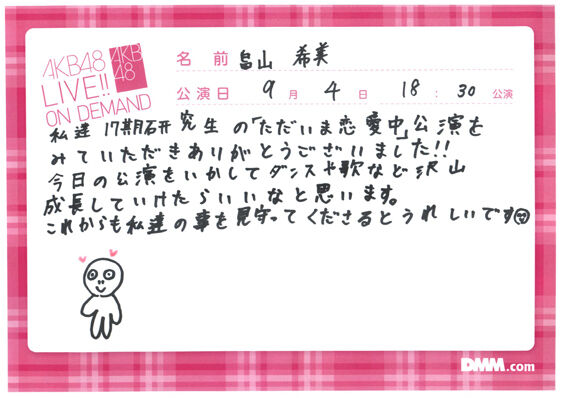 AKB48
LIVE!!
ON DEMAND
AKB
48
名前 畠山 希美
公演日 9月 4日 18:30 公演
私達 17期研究生の「ただいま恋愛中」公演を
みていただきありがとうございました!!
今日の公演をいかしてダンスや歌など沢山
成長していけたらいいなと思います。
これからも私達の事を見守ってくださるとうれしいです
DMM.com